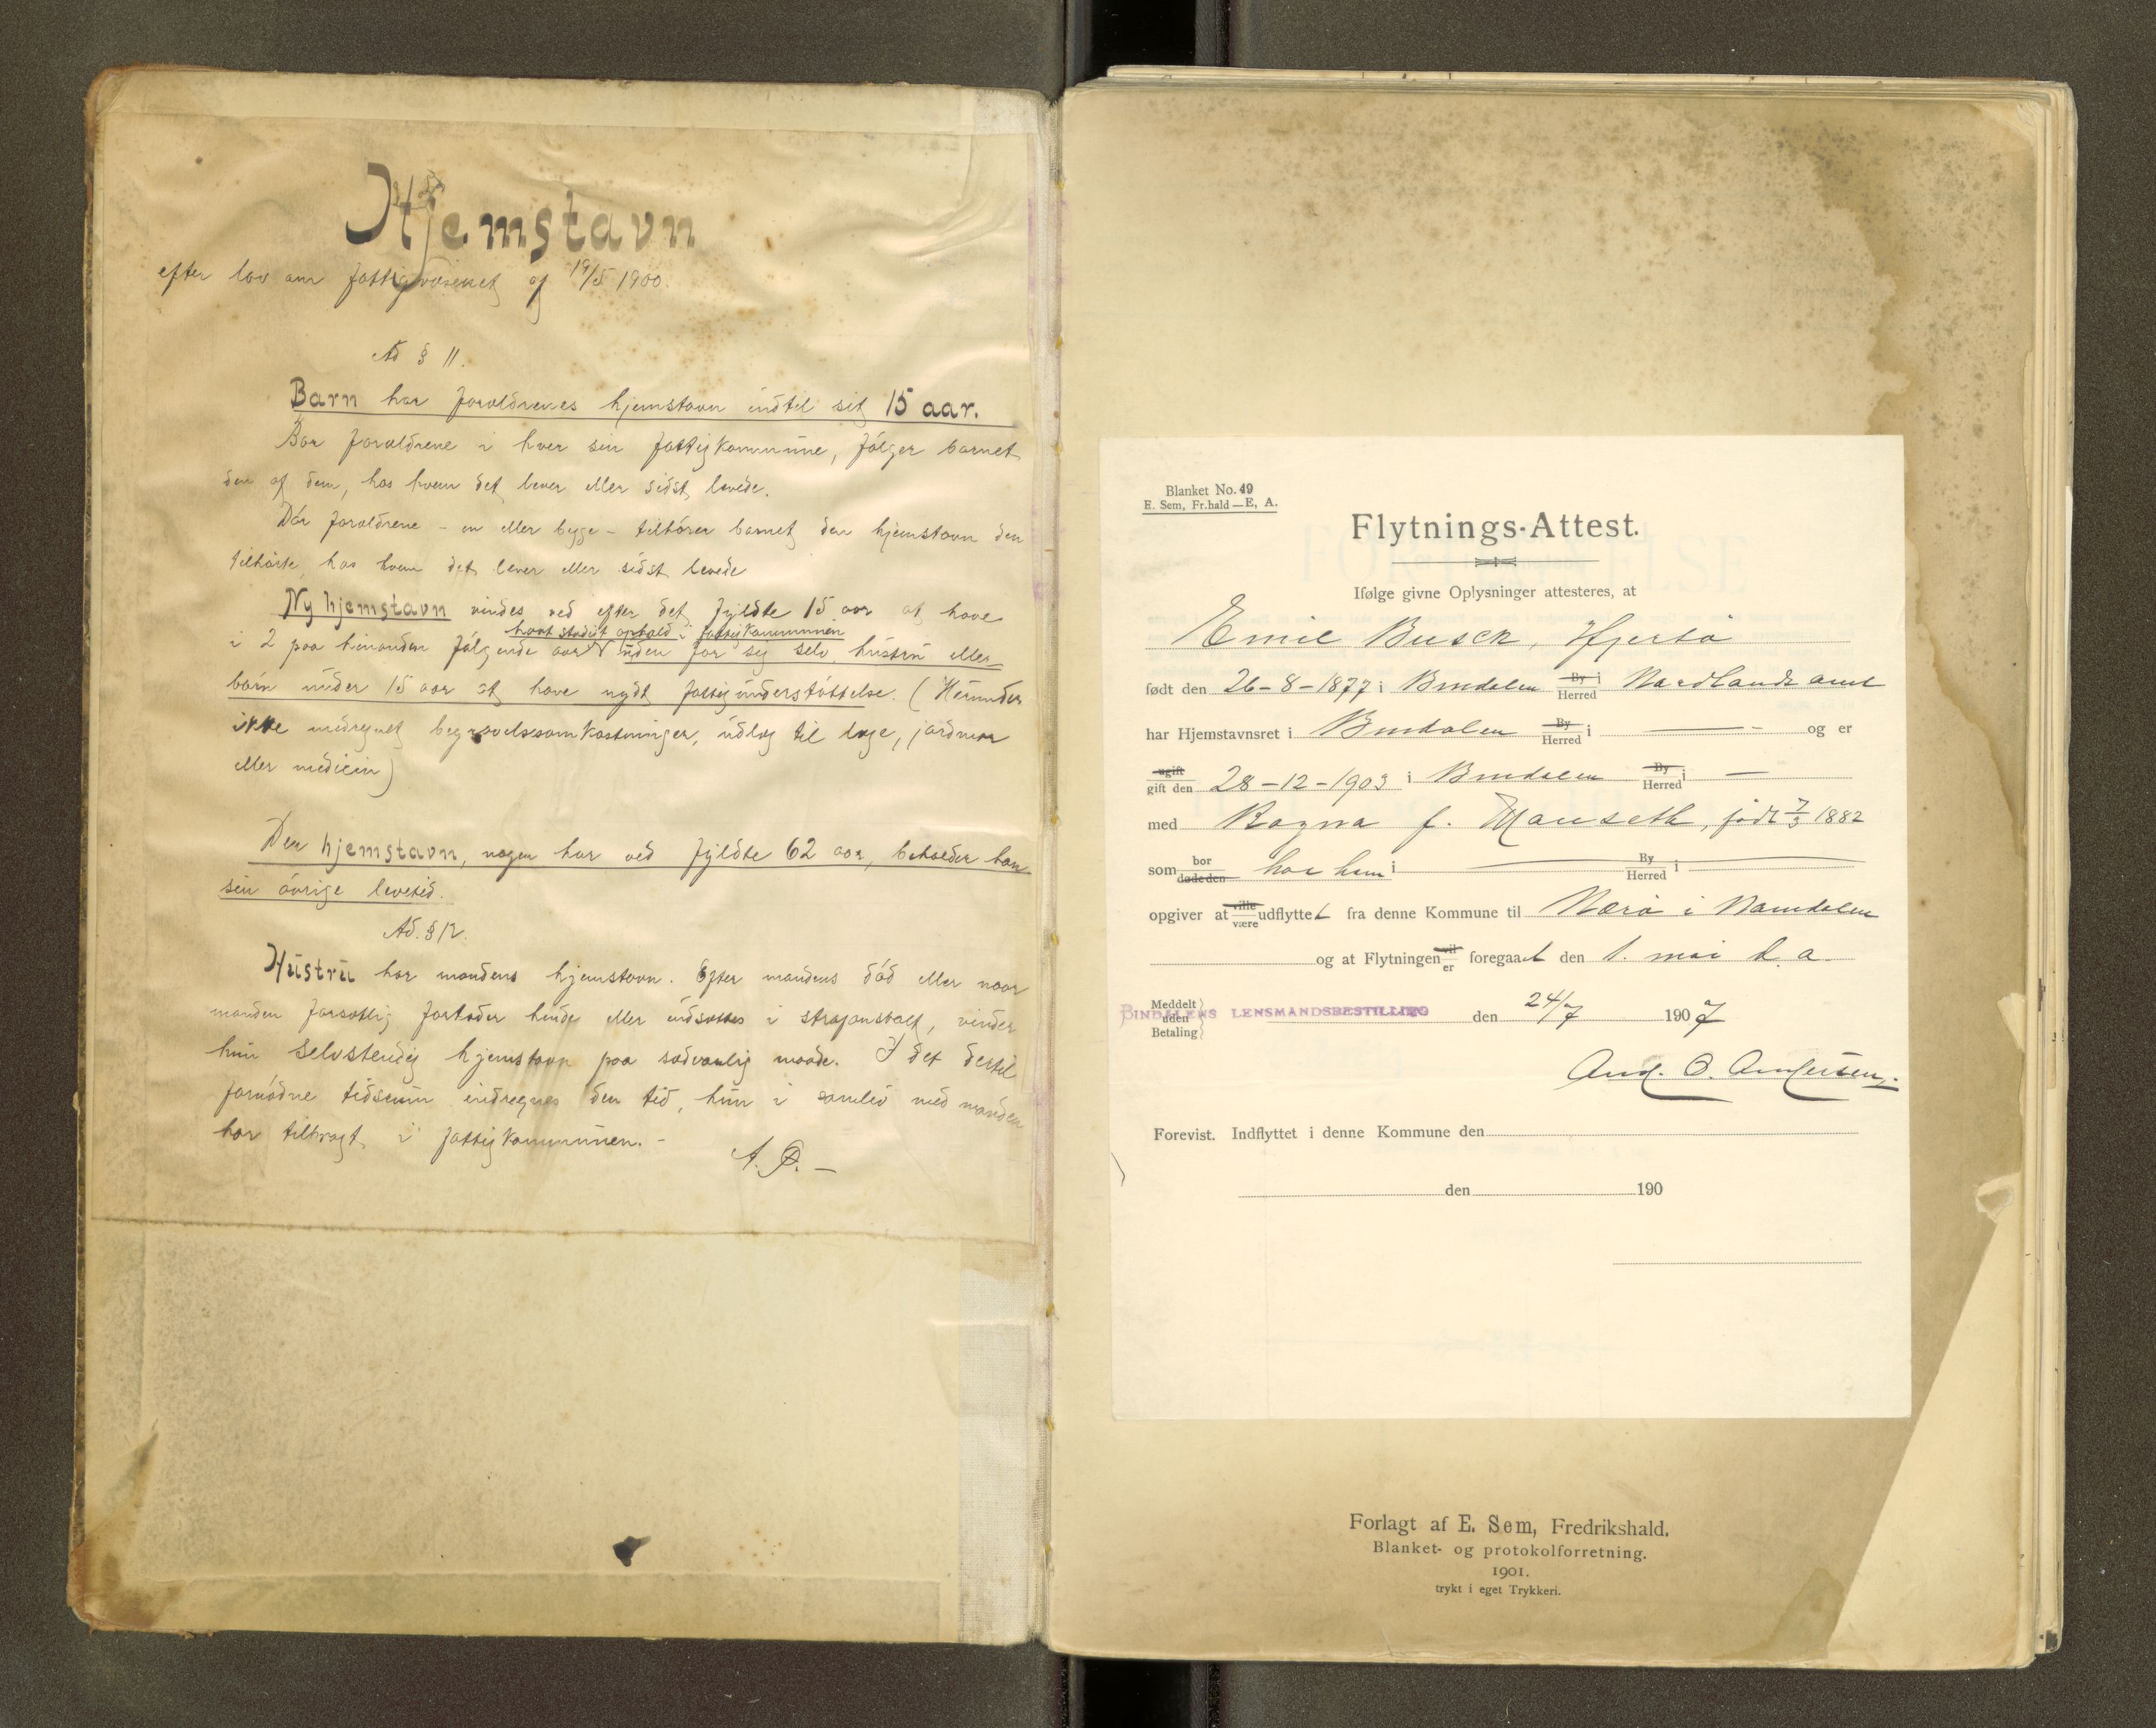 Hjemstavn
efter lov om fattigvæsenet af 19/5 1900.
Ad § 11.
Barn har forældrenes hjemstavn indtil sit 15 aar.
Bor forældrene i hver sin fattigkommune, følger barnet
den af dem, hos hvem det lever eller sidst levede.
Dør forældrene - en eller begge - tilhører barnet den hjemstavn den
tilhørte, hos hvem det lever eller sidst levede
Ny hjemstavn vindes ved efter det fyldte 15 aar at have
havt stadigt ophold i fattigkommunen
i 2 paa hinanden følgende aar uden for sig selv, hustru eller
børn under 15 aar at have nydt fattigunderstøttelse. (Herunder
ikke medregnet begravelsesomkostninger, udlæg til læge, jordmor
eller medicin)
Den hjemstavn, nogen har ved fyldte 62 aar, beholder han
sin øvrige levetid.
Ad. § 12.
Hustru har mandens hjemstavn. Efter mandens død eller naar
manden forsætlig forlader hende eller indsættes i strafanstalt, vinder
hun selvstendig hjemstavn paa sædvanlig maade. I det dertil
fornødne tidsrum indregnes den tid, hun i samliv med manden
har tilbragt i fattigkommunen. -
Blanket No. 49
E. Sem, Fr.hald — E, A.
Flytnings-Attest.
Ifølge givne Oplysninger attesteres, at
Emil Busck, Hfjertø
født den 26-8-1877 i Bindalen By Herred i Nordlands amt
har Hjemstavnsret i Bindalen By Herred i — og er
ugift gift den 28-12-1903 i Bindalen By Herred i —
med Ragna f. Mauseth, født 7/3 1882
som bor døde den hos ham i By Herred i
opgiver at ville være udflyttet fra denne Kommune til Nærø i Namdalen
og at Flytningen vil er foregaaet den 1. mai d. a.
Meddelt uden Betaling
BINDALENS LENSMANDSBESTILLING den 24/7 1907
And. O. Andersen.
Forevist. Indflyttet i denne Kommune den
den 190
Forlagt af E. Sem, Fredrikshald.
Blanket- og protokolforretning.
1901.
trykt i eget Trykkeri.